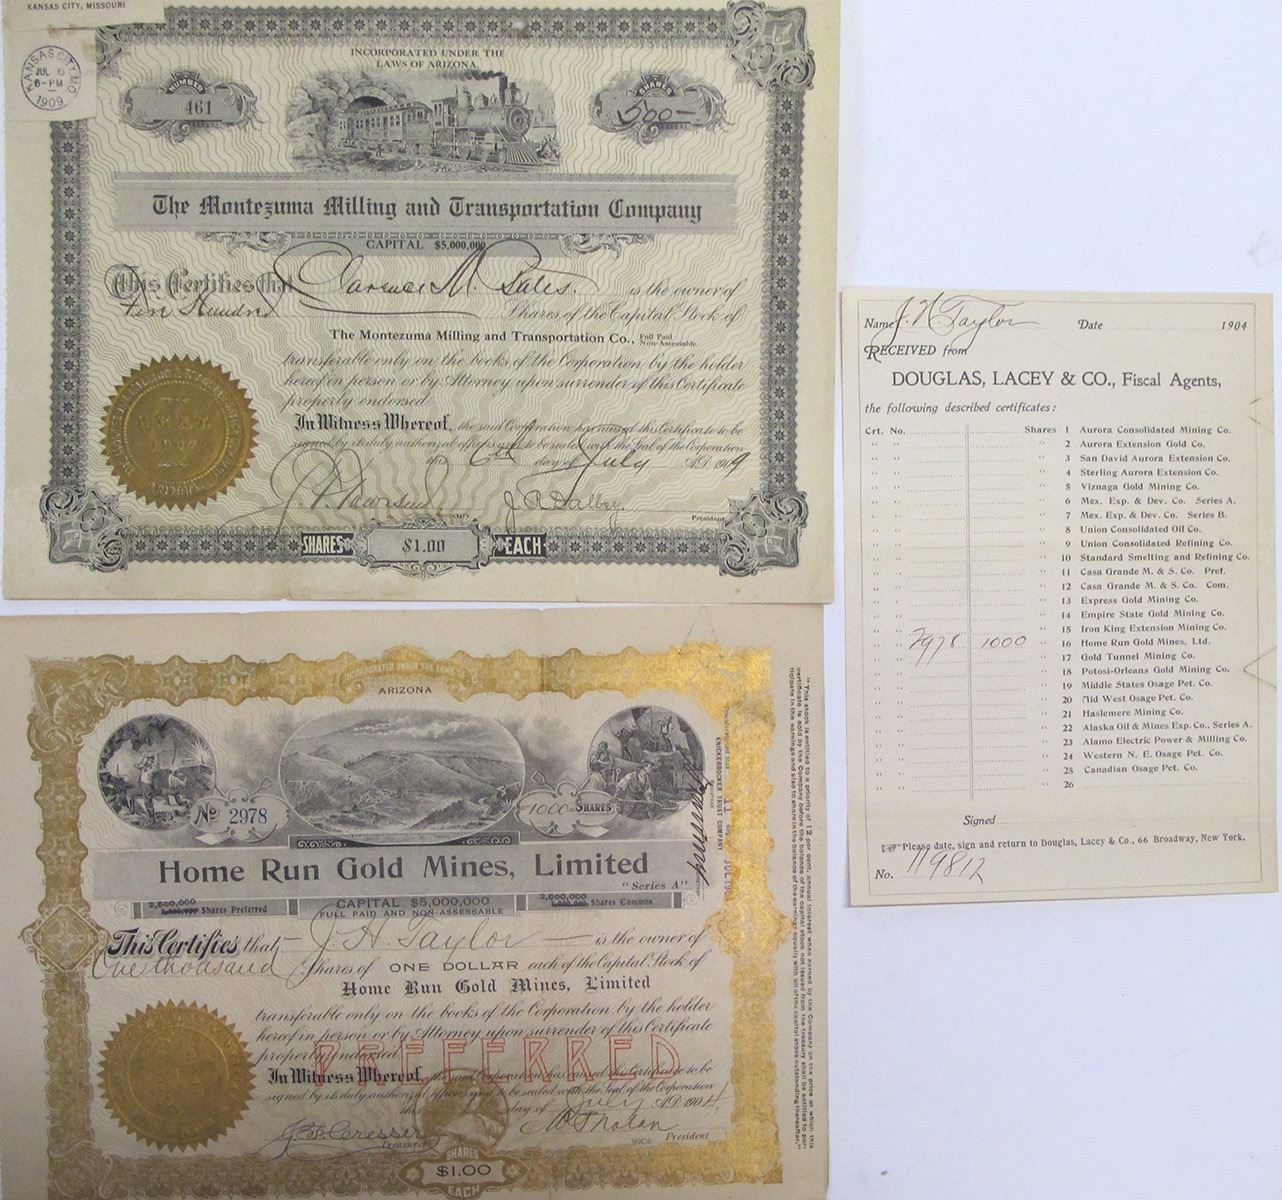 KANSAS CITY, MISSOURI
KANSAS CITY, MO.
JUL 6
6-PM
1909
INCORPORATED UNDER THE
LAWS OF ARIZONA
NUMBER
461
SHARES
500-
The Montezuma Milling and Transportation Company
CAPITAL $5,000,000
This Certifies that Clarence M. Bates. is the owner of
Five Hundred Shares of the Capital Stock of
The Montezuma Milling and Transportation Co., Full Paid Non-Assessable.
transferable only on the books of the Corporation by the holder
hereof in person or by Attorney upon surrender of this Certificate
properly endorsed.
In Witness Whereof, the said Corporation has caused this Certificate to be
signed by its duly authorized officers and to be sealed with the Seal of the Corporation
this 6th day of July A.D. 1909
J. A. Dalby.
Secretary
President
SHARES $1.00 EACH
INCORPORATED UNDER THE LAWS
ARIZONA
No 2978
1000 SHARES
Home Run Gold Mines, Limited
"Series A"
2,500,000 Shares Preferred
CAPITAL $5,000,000
FULL PAID AND NON-ASSESSABLE
2,500,000 Shares Common
This Certifies that J. H. Taylor is the owner of
One thousand Shares of ONE DOLLAR each of the Capital Stock of
Home Run Gold Mines, Limited
transferable only on the books of the Corporation by the holder
hereof in person or by Attorney upon surrender of this Certificate
properly endorsed.
PREFERRED
In Witness Whereof, the said Corporation has caused this Certificate to be
signed by its duly authorized officers and to be sealed with the Seal of the Corporation
this day of July A.D. 1904
Treasurer
President
SHARES
$1.00
EACH
KNICKERBOCKER TRUST COMPANY
"This stock is entitled to a priority of 12 per cent. annual interest when earned by the Company on the price at which this
certificate is sold by the Company before the balance of the capital stock not issued from the treasury shall be entitled to par-
ticipate in the earnings and also to share in the balance of the earnings equally with all of the capital stock outstanding thereafter."
Name J. H Taylor Date 1904
RECEIVED from
DOUGLAS, LACEY & CO., Fiscal Agents,
the following described certificates:
Crt. No. Shares 1 Aurora Consolidated Mining Co.
" " " 2 Aurora Extension Gold Co.
" " " 3 San David Aurora Extension Co.
" " " 4 Sterling Aurora Extension Co.
" " " 5 Viznaga Gold Mining Co.
" " " 6 Mex. Exp. & Dev. Co. Series A.
" " " 7 Mex. Exp. & Dev. Co. Series B.
" " " 8 Union Consolidated Oil Co.
" " " 9 Union Consolidated Refining Co.
" " " 10 Standard Smelting and Refining Co.
" " " 11 Casa Grande M. & S. Co. Pref.
" " " 12 Casa Grande M. & S. Co. Com.
" " " 13 Express Gold Mining Co.
" " " 14 Empire State Gold Mining Co.
" " " 15 Iron King Extension Mining Co.
" " 2978 1000 " 16 Home Run Gold Mines, Ltd.
" " " 17 Gold Tunnel Mining Co.
" " " 18 Potosi-Orleans Gold Mining Co.
" " " 19 Middle States Osage Pet. Co.
" " " 20 Mid West Osage Pet. Co.
" " " 21 Haslemere Mining Co.
" " " 22 Alaska Oil & Mines Exp. Co., Series A.
" " " 23 Alamo Electric Power & Milling Co.
" " " 24 Western N. E. Osage Pet. Co.
" " " 25 Canadian Osage Pet. Co.
" " " 26
Signed
☞ Please date, sign and return to Douglas, Lacey & Co., 66 Broadway, New York.
No. 119812